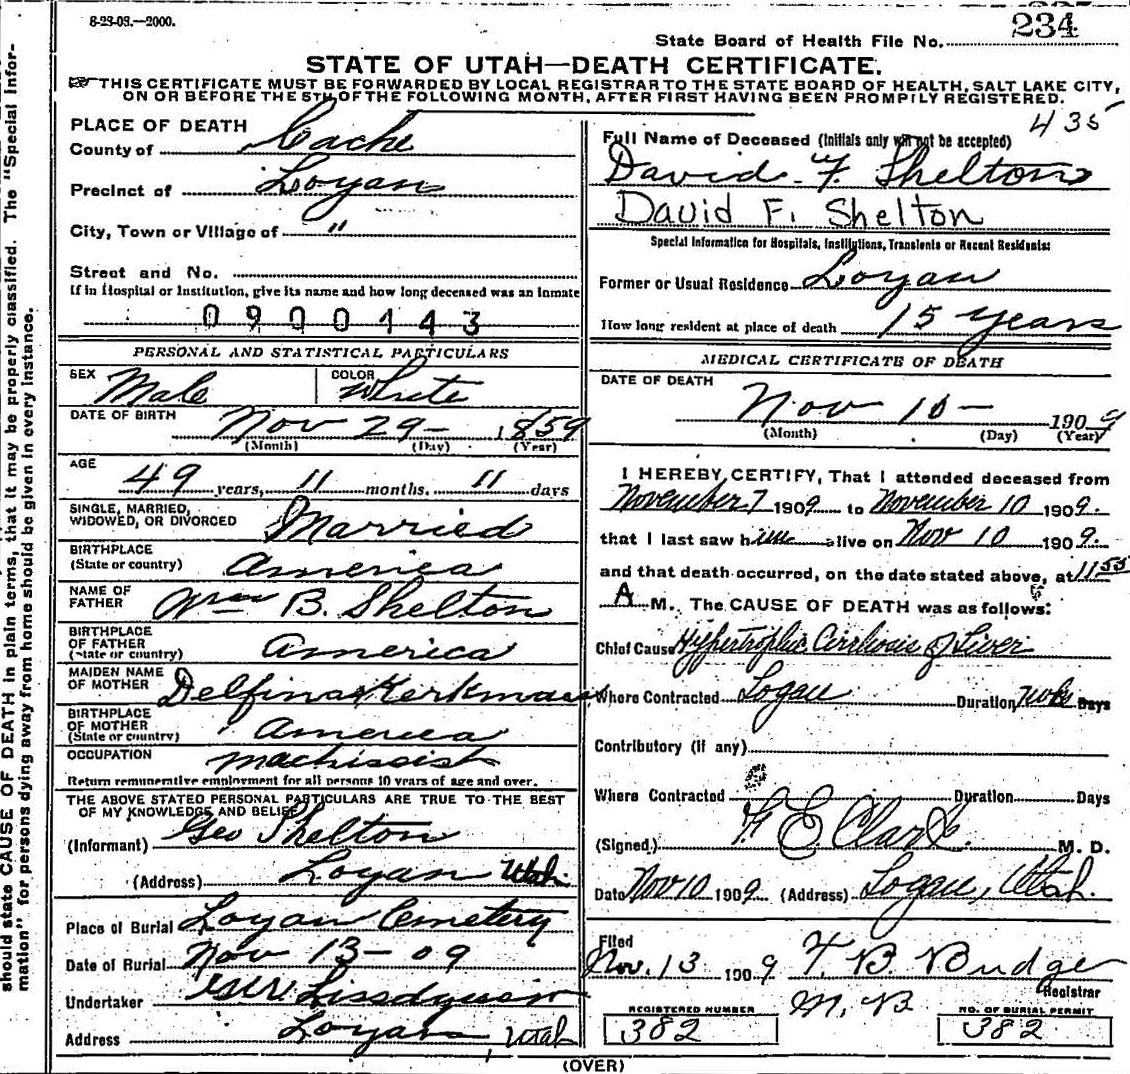 8-23-08.—2000.
234
State Board of Health File No.
STATE OF UTAH—DEATH CERTIFICATE.
THIS CERTIFICATE MUST BE FORWARDED BY LOCAL REGISTRAR TO THE STATE BOARD OF HEALTH, SALT LAKE CITY,
ON OR BEFORE THE 5TH OF THE FOLLOWING MONTH, AFTER FIRST HAVING BEEN PROMPILY REGISTERED.
435
PLACE OF DEATH
County of Cache
Precinct of Logan
City, Town or Village of "
Street and No.
If in Hospital or Institution, give its name and how long deceased was an inmate
0900143
PERSONAL AND STATISTICAL PARTICULARS
SEX Male COLOR White
DATE OF BIRTH Nov 29- 1859
(Month) (Day) (Year)
AGE 49 years, 11 months. 11 days
SINGLE, MARRIED,
WIDOWED, OR DIVORCED Married
BIRTHPLACE
(State or country) America
NAME OF
FATHER Wm B. Shelton
BIRTHPLACE
OF FATHER
(State or country) America
MAIDEN NAME
OF MOTHER Delfina Kerkman
BIRTHPLACE
OF MOTHER
(State or country) America
OCCUPATION machissist
Return remunerative employment for all persons 10 years of age and over.
THE ABOVE STATED PERSONAL PARTICULARS ARE TRUE TO THE BEST
OF MY KNOWLEDGE AND BELIEF
(Informant) Geo Shelton
(Address) Logan Utah
Place of Burial Logan Cemetery
Date of Burial Nov 13-09
Undertaker
Address Logan, Utah
Full Name of Deceased (Initials only will not be accepted)
David F. Shelton
David F. Shelton
Special Information for Hospitals, Institutions, Transients or Recent Residents:
Former or Usual Residence Logan
How long resident at place of death 15 years
MEDICAL CERTIFICATE OF DEATH
DATE OF DEATH
Nov 10- 1909
(Month) (Day) (Year)
I HEREBY CERTIFY, That I attended deceased from
November 7 1909 to November 10 1909.
that I last saw him alive on Nov 10 1909.
and that death occurred, on the date stated above, at 11 55
A M. The CAUSE OF DEATH was as follows:
Chief Cause Hypertrophic Cirrhosis of Liver
Where Contracted Logan Duration Days
Contributory (if any)
Where Contracted Duration Days
(Signed.) F. E. Clark M. D.
Date Nov 10 1909 (Address) Logan, Utah.
Filed
Nov. 13 1909 T. B. Budge
Registrar
M. B
REGISTERED NUMBER
382
NO. OF BURIAL PERMIT
382
(OVER)
should state CAUSE OF DEATH in plain terms, that it may be properly classified. The "Special Infor-
mation" for persons dying away from home should be given in every instance.